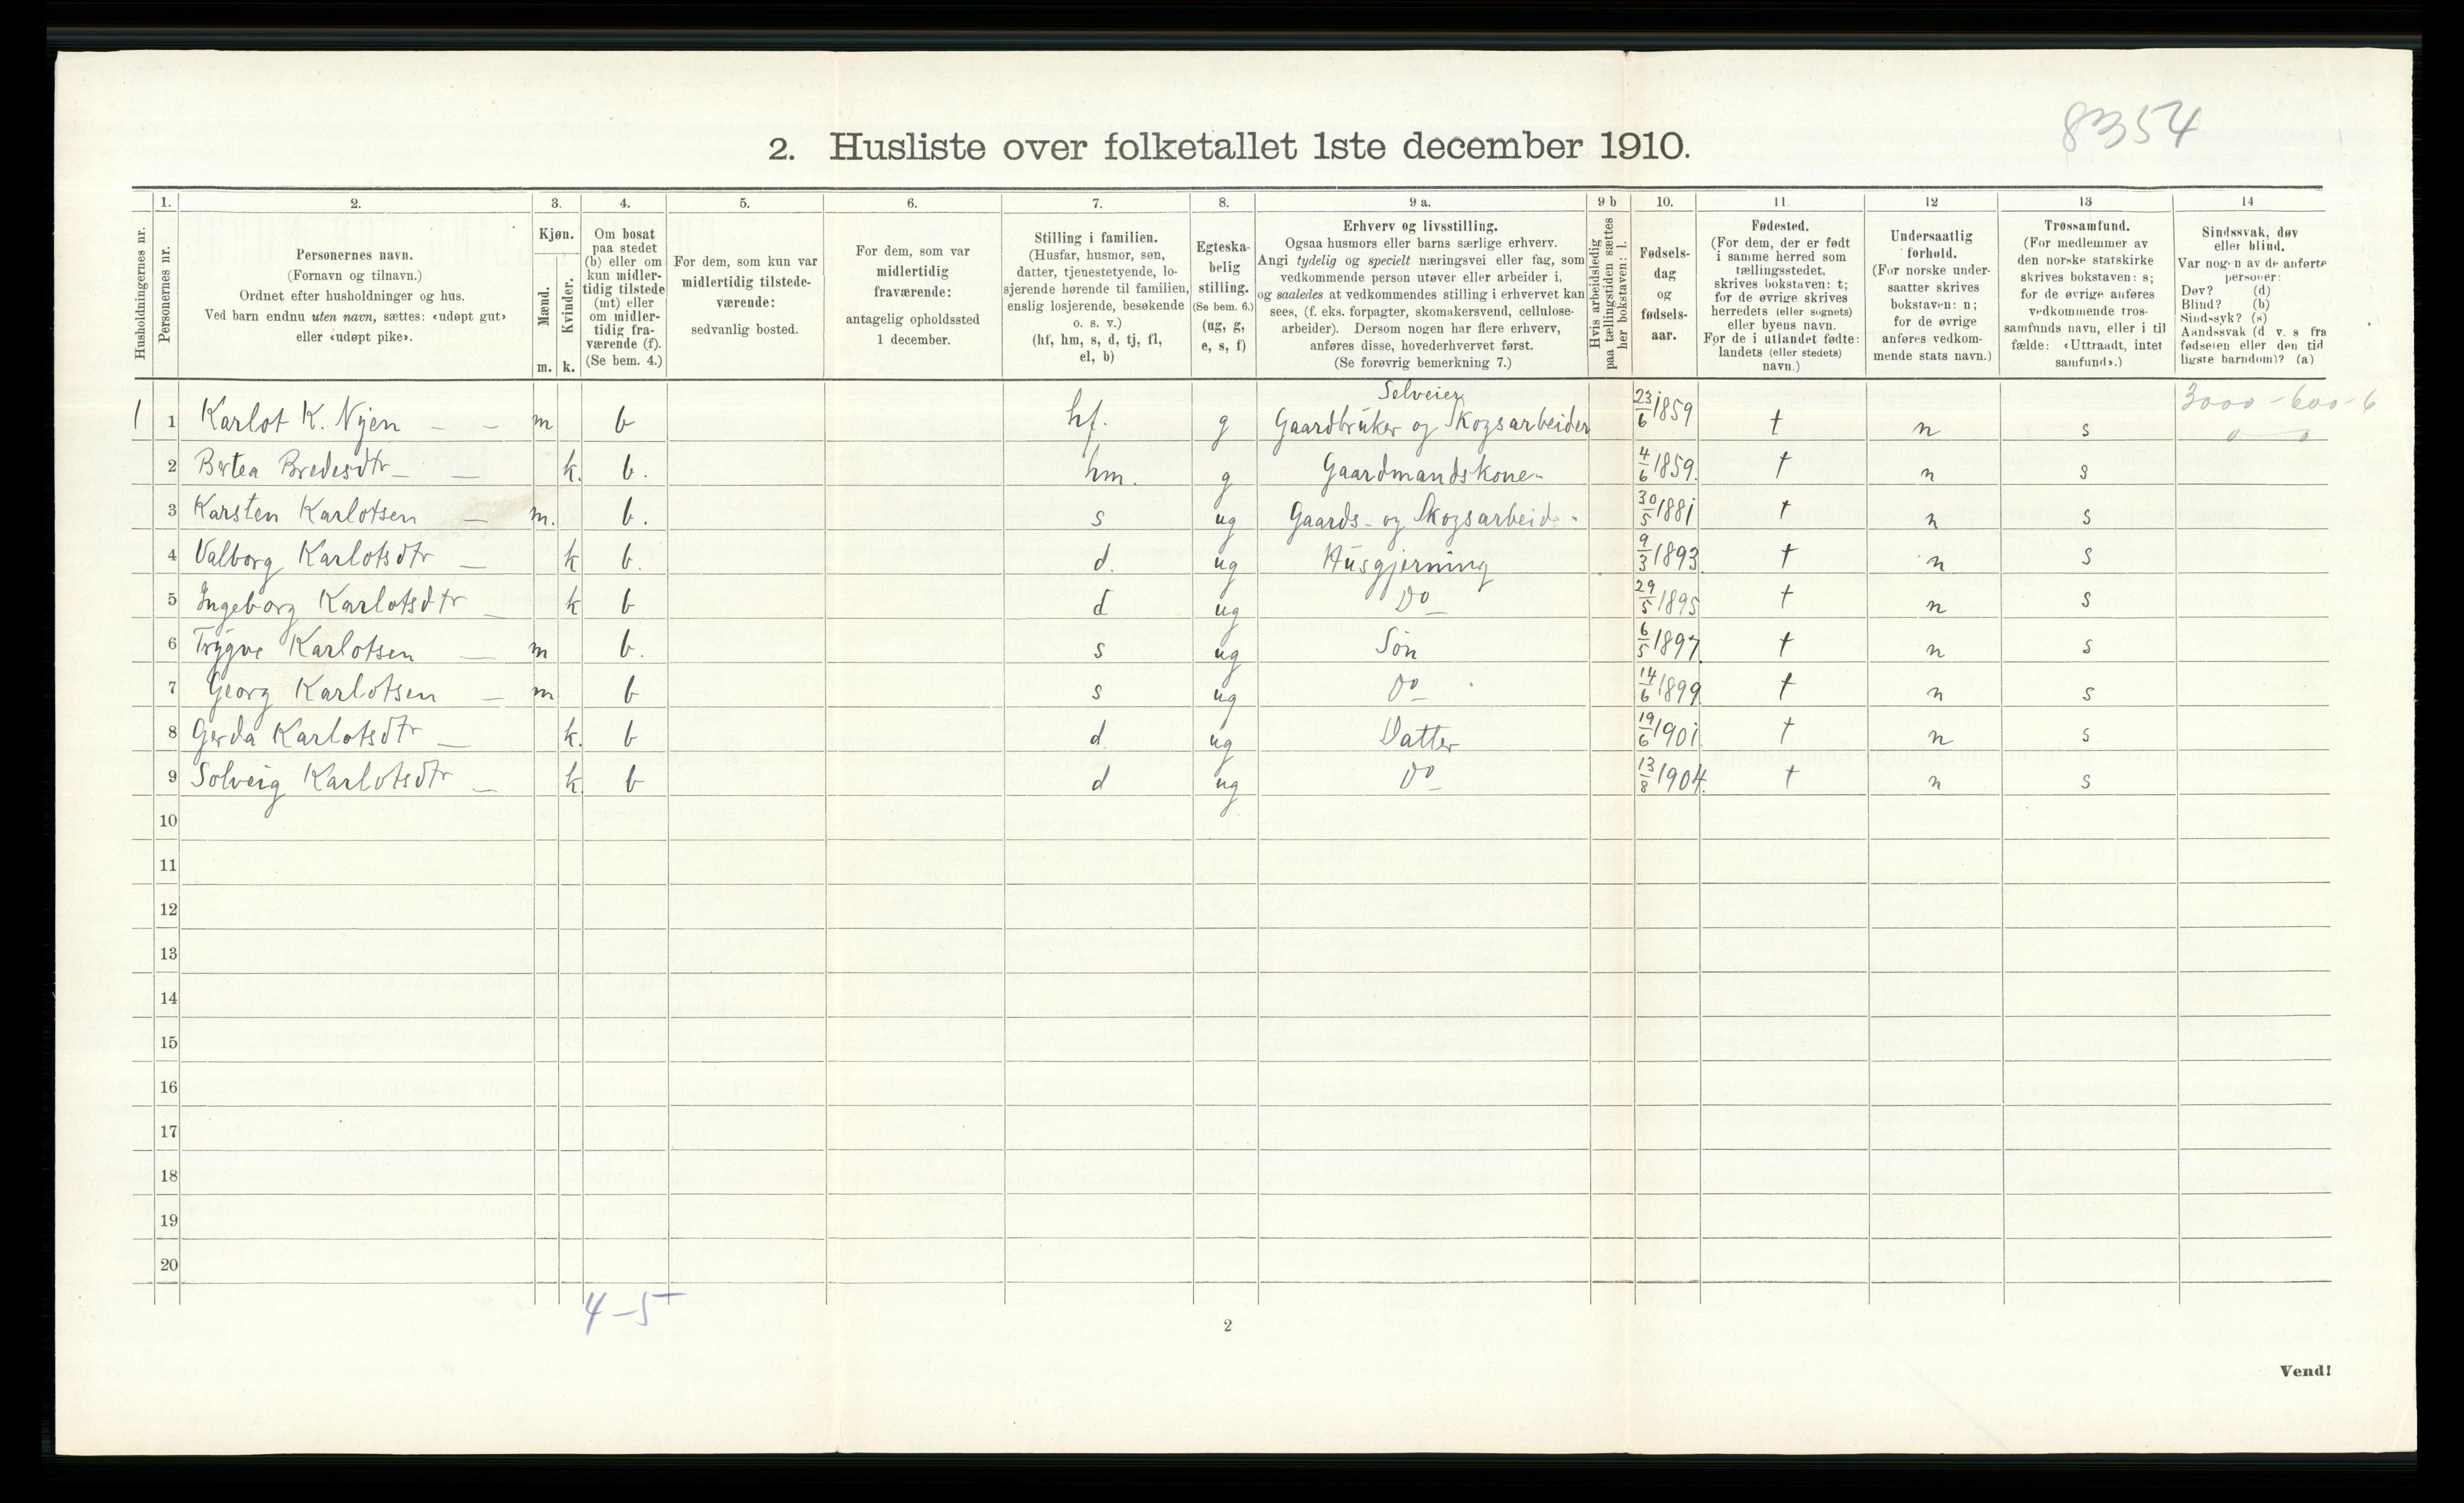 8354
2. Husliste over folketallet 1ste december 1910.
Husholdningernes nr.
1.
Personernes nr.
2.
Personernes navn.
(Fornavn og tilnavn.)
Ordnet efter husholdninger og hus.
Ved barn endnu uten navn, sættes: «udøpt gut»
eller «udøpt pike».
3.
Kjøn.
Mænd.
Kvinder.
m. k.
4.
Om bosat
paa stedet
(b) eller om
kun midler-
tidig tilstede
(mt) eller
om midler-
tidig fra-
værende (f).
(Se bem. 4.)
5.
For dem, som kun var
midlertidig tilstede-
værende:
sedvanlig bosted.
6.
For dem, som var
midlertidig
fraværende:
antagelig opholdssted
1 december.
7.
Stilling i familien.
(Husfar, husmor, søn,
datter, tjenestetyende, lo-
sjerende hørende til familien,
enslig losjerende, besøkende
o. s. v.)
(hf, hm, s, d, tj, fl,
el, b)
8.
Egteska-
belig
stilling.
(Se bem. 6.)
(ug, g,
e, s, f)
9 a.
Erhverv og livsstilling.
Ogsaa husmors eller barns særlige erhverv.
Angi tydelig og specielt næringsvei eller fag, som
vedkommende person utøver eller arbeider i,
og saaledes at vedkommendes stilling i erhvervet kan
sees, (f. eks. forpagter, skomakersvend, cellulose-
arbeider). Dersom nogen har flere erhverv,
anføres disse, hovederhvervet først.
(Se forøvrig bemerkning 7.)
9 b
Hvis arbeidsledig
paa tællingstiden sættes
her bokstaven: l.
10.
Fødsels-
dag
og
fødsels-
aar.
11.
Fødested.
(For dem, der er født
i samme herred som
tællingsstedet,
skrives bokstaven: t;
for de øvrige skrives
herredets (eller sognets)
eller byens navn.
For de i utlandet fødte:
landets (eller stedets)
navn.)
12
Undersaatlig
forhold.
(For norske under-
saatter skrives
bokstaven: n;
for de øvrige
anføres vedkom-
mende stats navn.)
13
Trossamfund.
(For medlemmer av
den norske statskirke
skrives bokstaven: s;
for de øvrige anføres
vedkommende tros-
samfunds navn, eller i til
fælde: «Uttraadt, intet
samfund».)
14
Sindssvak, døv
eller blind.
Var nogen av de anførte
personer:
Døv? (d)
Blind? (b)
Sindssyk? (s)
Aandssvak (d v. s fra
fødselen eller den tid
ligste barndom)? (a)
Selveier 3000-600-6
1 1 Karlot K. Nyen - - m b hf. g Gaardbruker og Skogsarbeider 23/6 1859 t n s 0 0
2 Bertea Bredesdtr - - k. b. hm. g Gaardmandskone 4/6 1859. t n s
3 Karsten Karlotsen - m. b. s ug Gaards- og Skogsarbeide 30/5 1881 t n s
4 Valborg Karlotsdtr - k b. d. ug Husgjerning 9/3 1893. t n s
5 Ingeborg Karlotsdtr - k b d ug Do 29/5 1895 t n s
6 Trygve Karlotsen - m b. s ug Søn 6/5 1897. t n s
7 Georg Karlotsen - m b s ug Do 14/6 1899. t n s
8 Gerda Karlotsdtr - k. b d ug Datter 19/6 1901. t n s
9 Solveig Karlotsdtr - k. b d ug Do 13/8 1904. t n s
10
11
12
13
14
15
16
17
18
19
20
4-5
2
Vend!